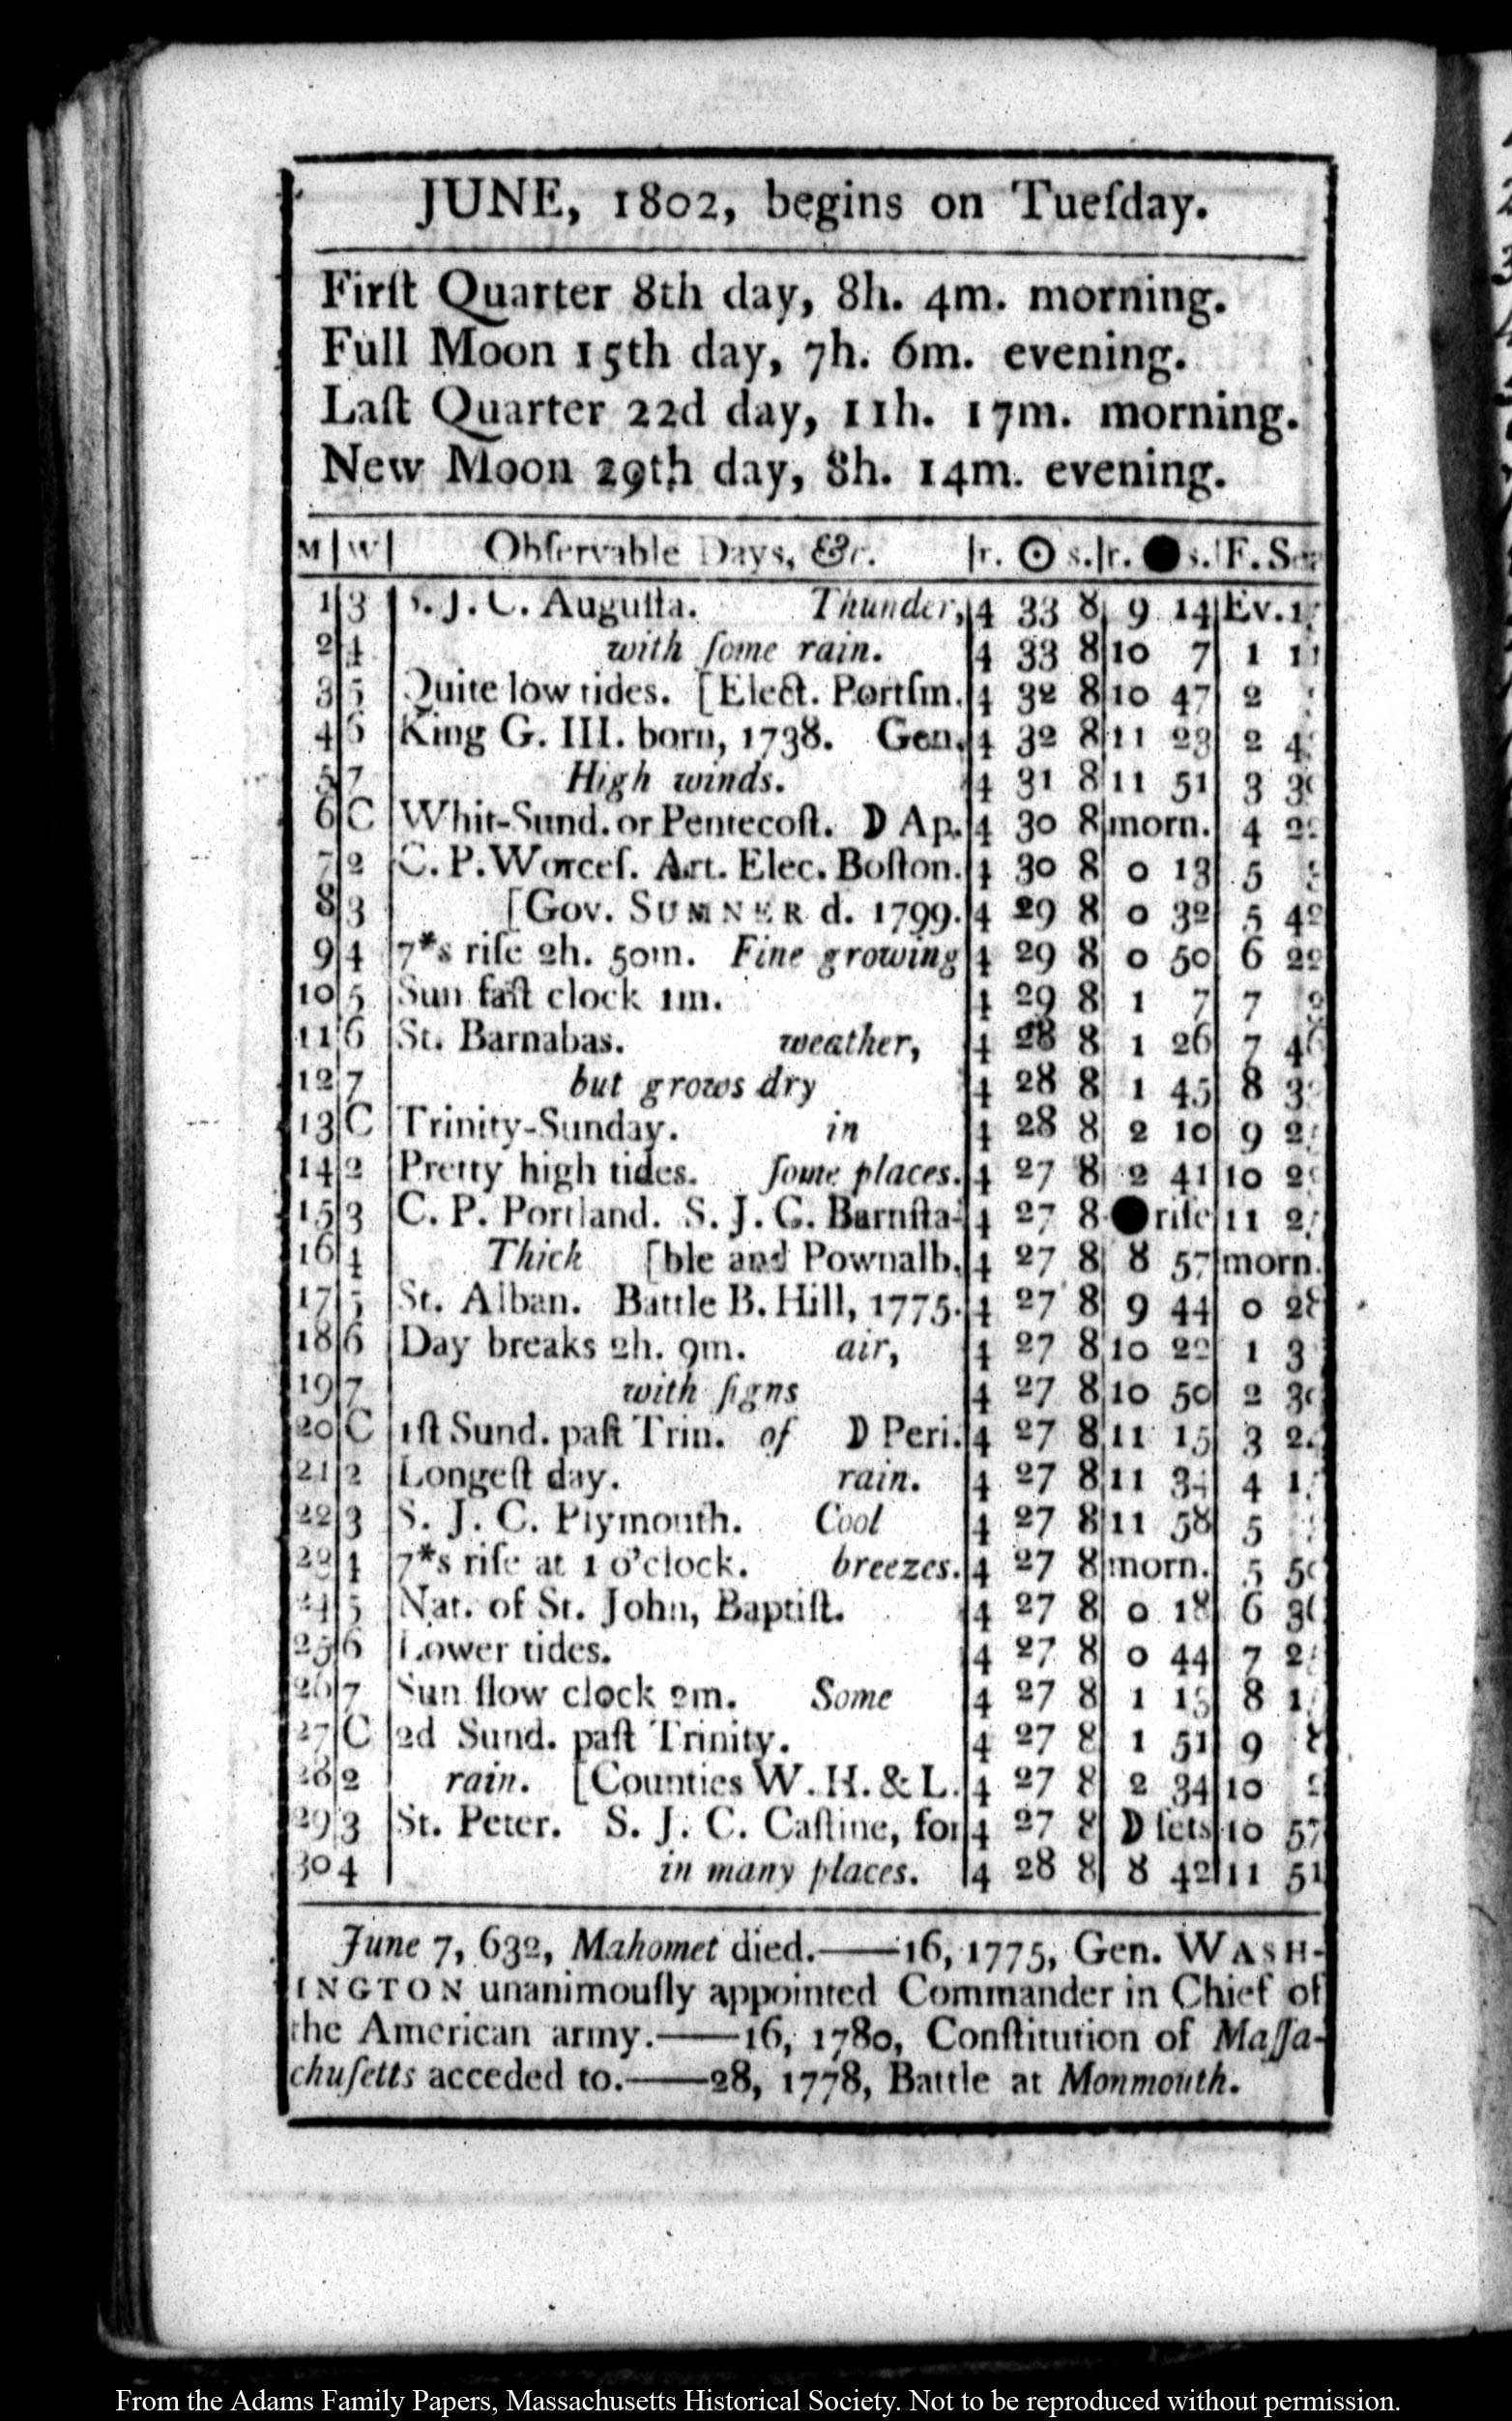 JUNE, 1802, begins on Tueſday.
Firſt Quarter 8th day, 8h. 4m. morning.
Full Moon 15th day, 7h. 6m. evening.
Laſt Quarter 22d day, 11h. 17m. morning.
New Moon 29th day, 8h. 14m. evening.
M|W| Obſervable Days, &c. |r. ☉ s.|r. ● s.|F. Sea
1|3 |S. J. C. Auguſta. Thunder,|4 33 8| 9 14|Ev.
2|4 with ſome rain. |4 33 8|10 7| 1
3|5 |Quite low tides. [Elect. Portſm.|4 32 8|10 47| 2
4|6 |King G. III. born, 1738. Gen.|4 32 8|11 23| 2
5|7 High winds. |4 31 8|11 51| 3
6|C |Whit-Sund. or Pentecoſt. D Ap.|4 30 8|morn.| 4
7|2 |C. P. Worceſ. Art. Elec. Boſton.|4 30 8| 0 13| 5
8|3 | [Gov. SUMNER d. 1799.|4 29 8| 0 32| 5
9|4 |7*s riſe 2h. 50m. Fine growing|4 29 8| 0 50| 6
10|5 |Sun faſt clock 1m. |4 29 8| 1 7| 7
11|6 |St. Barnabas. weather, |4 28 8| 1 26| 7
12|7 but grows dry |4 28 8| 1 45| 8
13|C |Trinity-Sunday. in |4 28 8| 2 10| 9
14|2 |Pretty high tides. ſome places.|4 27 8| 2 41|10
15|3 |C. P. Portland. S. J. C. Barnſta-|4 27 8 ●riſe|11
16|4 Thick [ble and Pownalb.|4 27 8| 8 57|morn.
17|5 |St. Alban. Battle B. Hill, 1775.|4 27 8| 9 44| 0 28
18|6 |Day breaks 2h. 9m. air, |4 27 8|10 22| 1
19|7 with ſigns |4 27 8|10 50| 2
20|C |1ſt Sund. paſt Trin. of D Peri.|4 27 8|11 15| 3
21|2 |Longeſt day. rain. |4 27 8|11 34| 4
22|3 |S. J. C. Plymouth. Cool |4 27 8|11 58| 5
23|4 |7*s riſe at 1 o'clock. breezes.|4 27 8|morn.| 5
24|5 |Nat. of St. John, Baptiſt. |4 27 8| 0 18| 6
25|6 |Lower tides. |4 27 8| 0 44| 7
26|7 |Sun ſlow clock 2m. Some |4 27 8| 1 15| 8
27|C |2d Sund. paſt Trinity. |4 27 8| 1 51| 9
28|2 | rain. [Counties W. H. & L.|4 27 8| 2 34|10
29|3 |St. Peter. S. J. C. Caſtine, for|4 27 8| D ſets|10 57
30 4 | in many places. |4 28 8| 8 42|11 51
June 7, 632, Mahomet died.——16, 1775, Gen. WASH-
INGTON unanimouſly appointed Commander in Chief of
the American army.——16, 1780, Conſtitution of Maſſa-
chuſetts acceded to.——28, 1778, Battle at Monmouth.
From the Adams Family Papers, Massachusetts Historical Society. Not to be reproduced without permission.